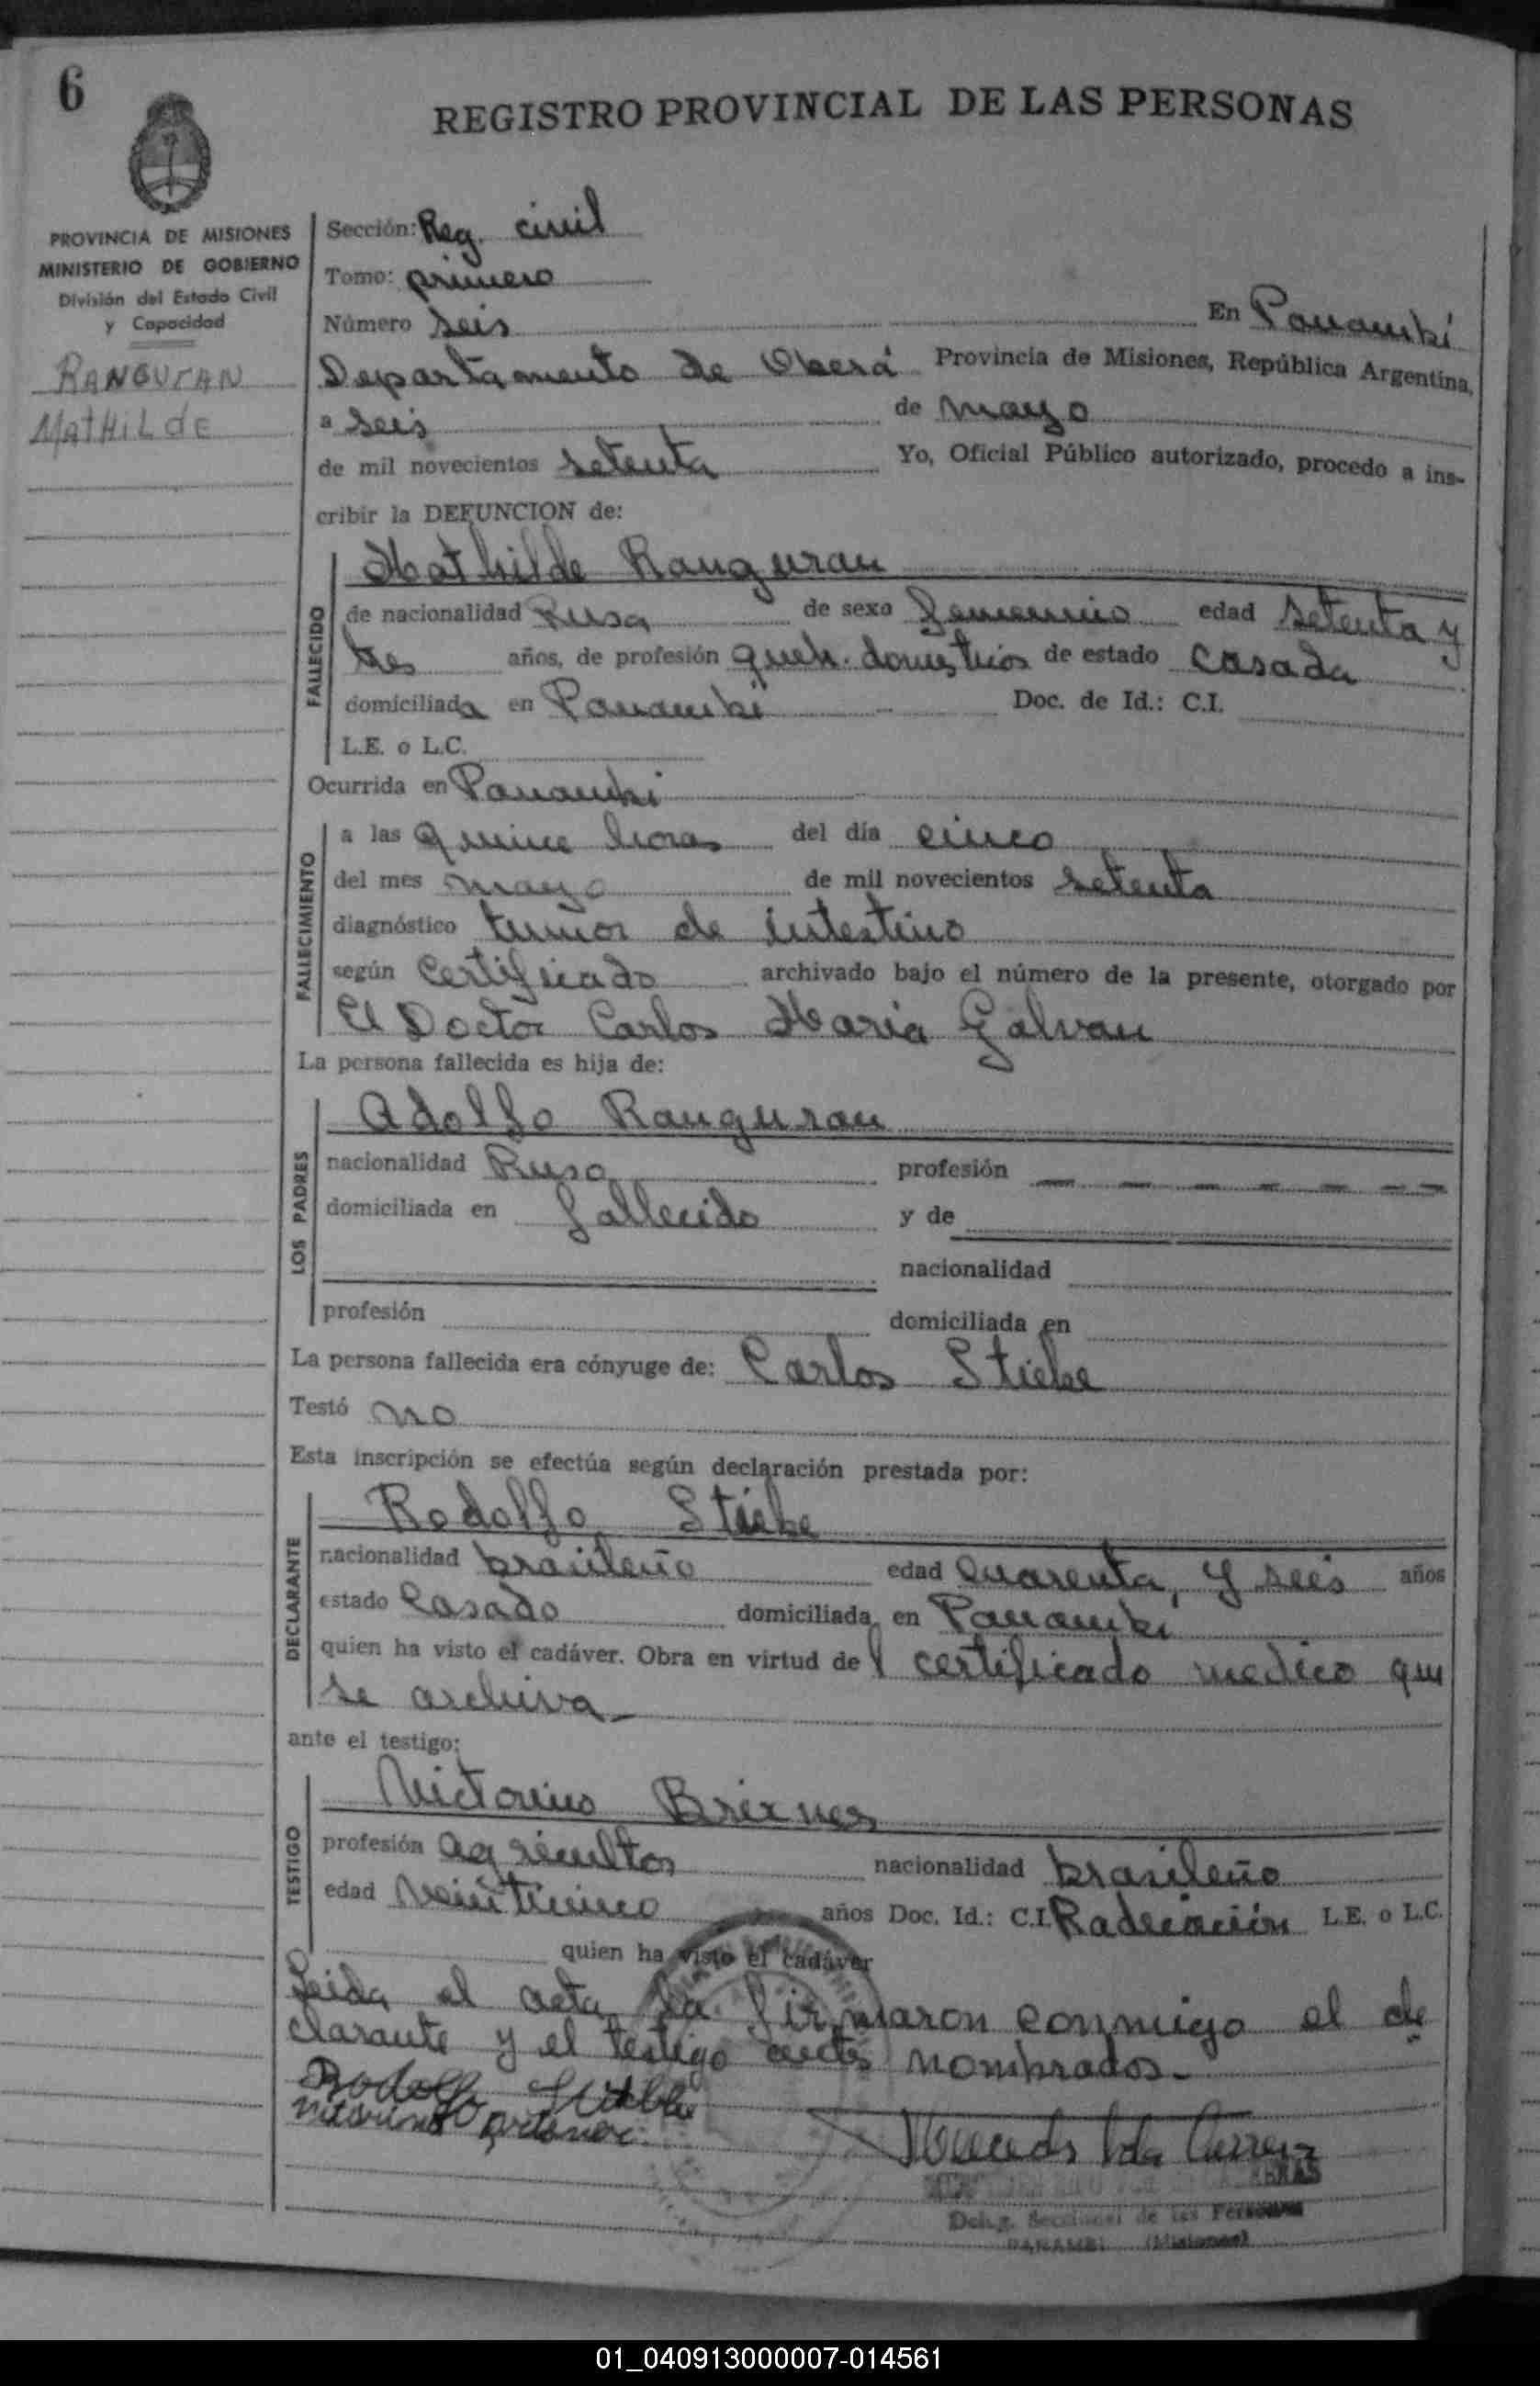 6
REGISTRO PROVINCIAL DE LAS PERSONAS
PROVINCIA DE MISIONES
MINISTERIO DE GOBIERNO
División del Estado Civil
y Capacidad
RANGURAN
MATHILdE
Sección: Reg. civil
Tomo: primero
Número seis En Panambí
Departamento de Oberá Provincia de Misiones, República Argentina,
a seis de mayo
de mil novecientos setenta Yo, Oficial Público autorizado, procedo a ins-
cribir la DEFUNCION de:
FALLECIDO
Mathilde Ranguran
de nacionalidad Rusa de sexo femenino edad setenta y
tres años, de profesión queh. domesticos de estado casada
domiciliada en Panambí Doc. de Id.: C.I.
L.E. o L.C.
Ocurrida en Panambi
FALLECIMIENTO
a las quince horas del día cinco
del mes mayo de mil novecientos setenta
diagnóstico tumor de intestino
según certificado archivado bajo el número de la presente, otorgado por
El Doctor Carlos Maria Galvan
La persona fallecida es hija de:
LOS PADRES
Adolfo Ranguran
nacionalidad Ruso profesión — — — — — —
domiciliada en fallecido y de
nacionalidad
profesión domiciliada en
La persona fallecida era cónyuge de: Carlos Stiebe
Testó no
Esta inscripción se efectúa según declaración prestada por:
DECLARANTE
Rodolfo Stiebe
nacionalidad brasileño edad cuarenta y seis años
estado Casado domiciliada en Panambi
quien ha visto el cadáver. Obra en virtud del certificado medico que
se archiva_
ante el testigo:
TESTIGO
Victorino
profesión agricultor nacionalidad brasileño
edad veinticinco años Doc. Id.: C.I. Radicación L.E. o L.C.
quien ha visto el cadáver
Leida el acta la firmaron conmigo el de
clarante y el testigo antes nombrados_
Rodolfo
Deleg. Seccional de las Personas
PANAMBI (Misiones)
01_040913000007-014561